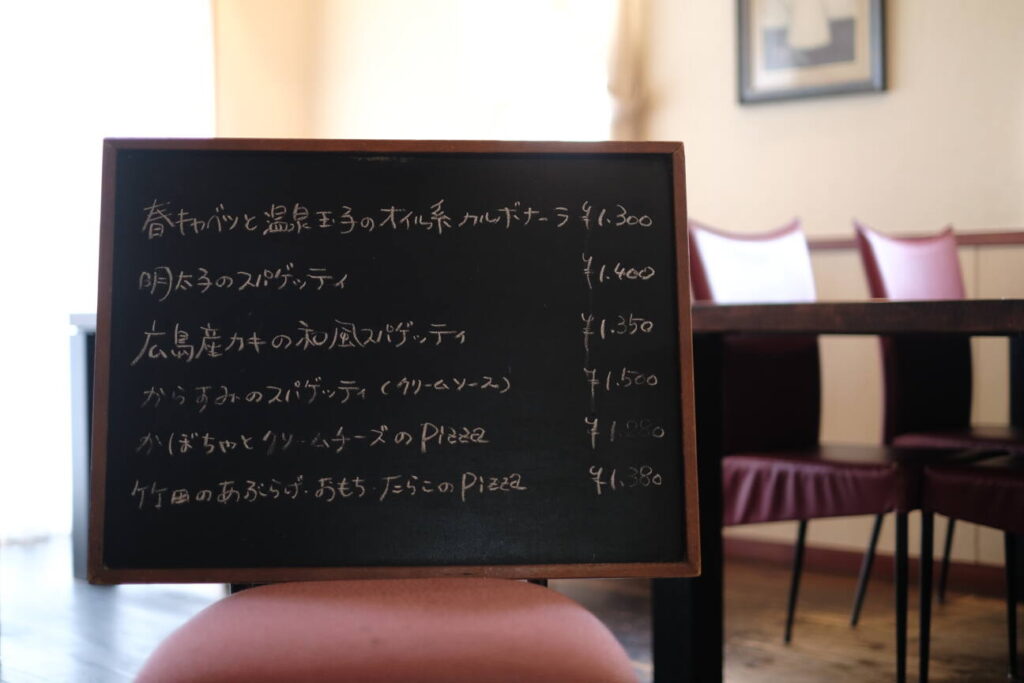 春キャベツと温泉玉子のオイル系カルボナーラ ¥1.300
明太子のスパゲッティ ¥1.400
広島産カキの和風スパゲッティ ¥1.350
からすみのスパゲッティ(クリームソース) ¥1.500
かぼちゃとクリームチーズのPizza
竹田のあぶらげ・おもち・たらこのPizza ¥1.380